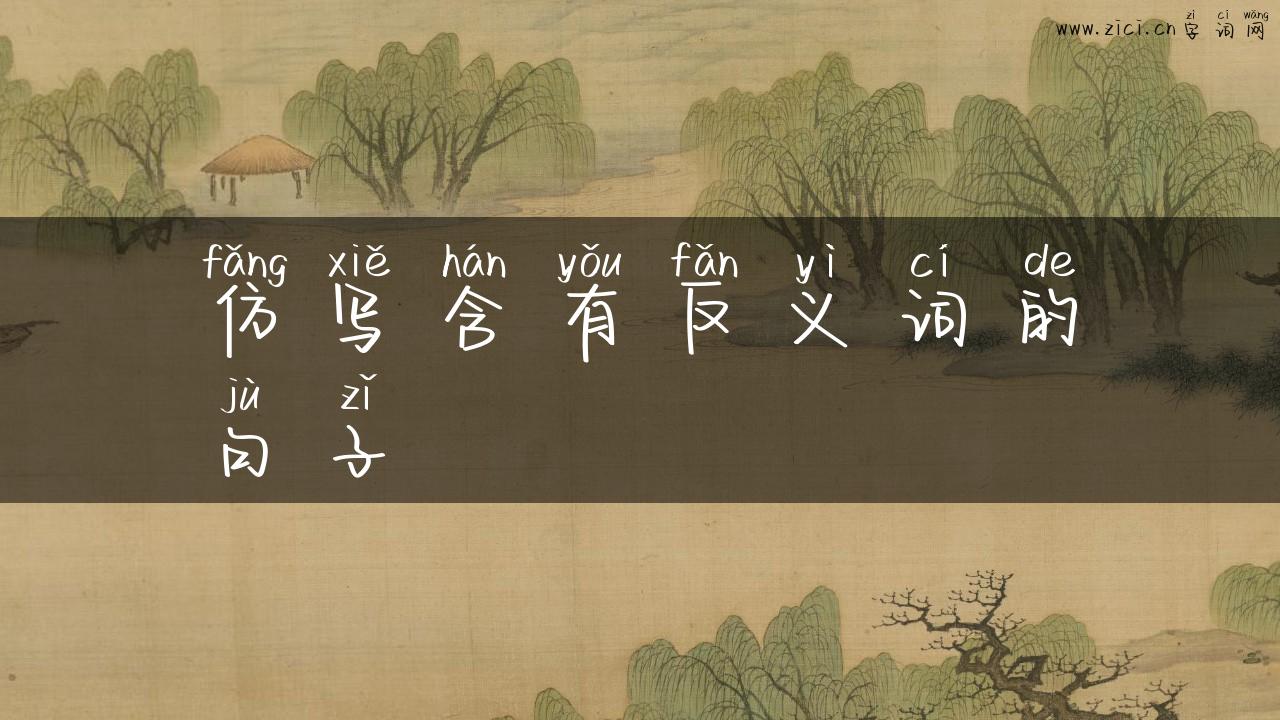 zì cí wǎng
www.zici.cn 字 词 网
fǎng xiě hán yǒu fǎn yì cí de
仿 写 含 有 反 义 词 的
jù zǐ
句 子